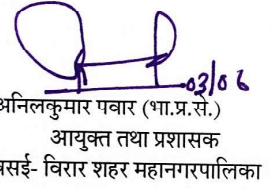 03/06
अनिलकुमार पवार (भा.प्र.से.)
आयुक्त तथा प्रशासक
वसई- विरार शहर महानगरपालिका